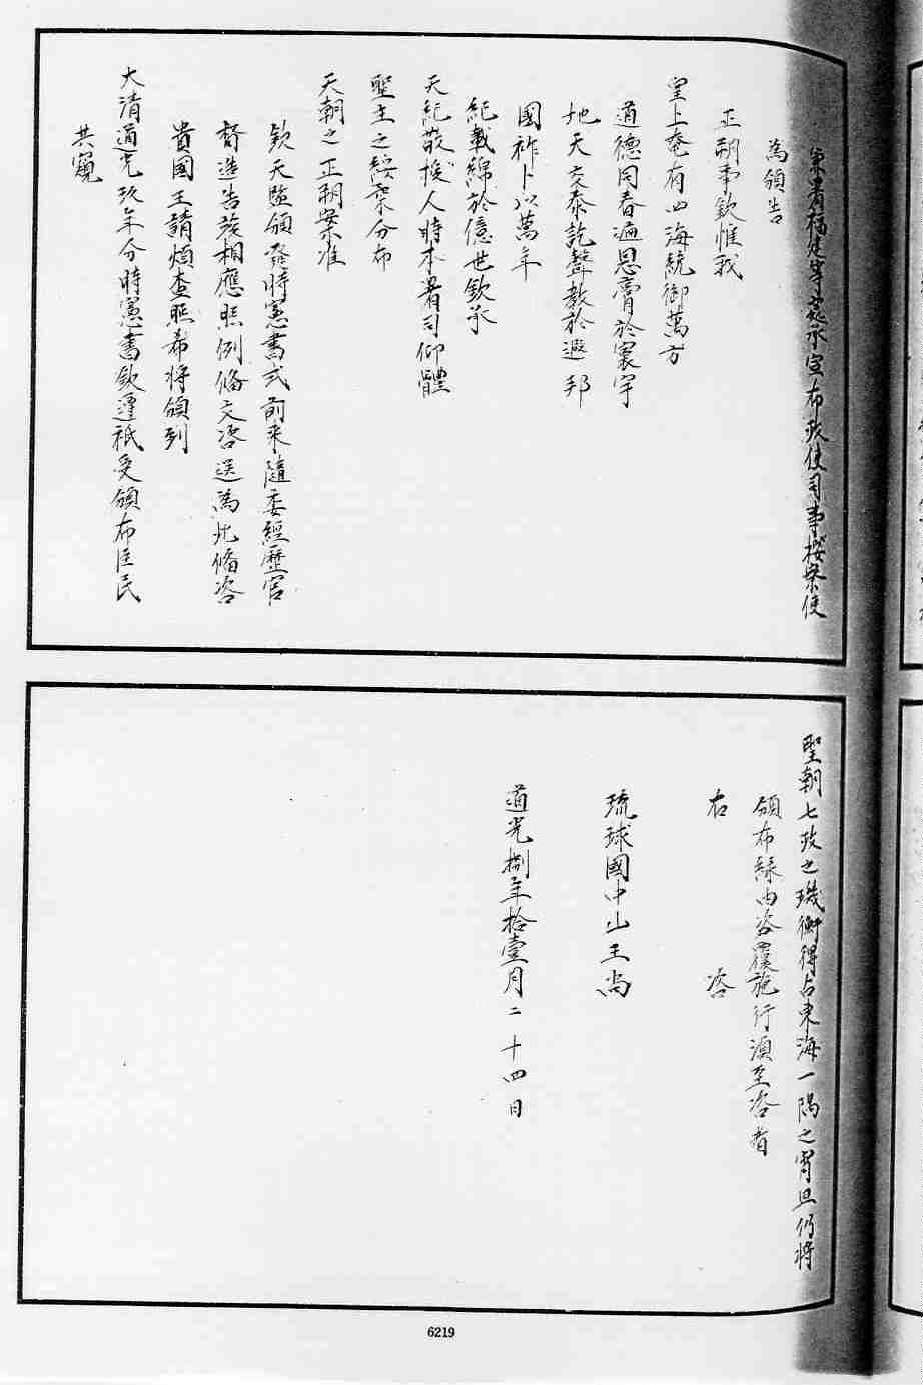 兼署福建等處承宣布政使司事按察使
為頒告
正朔事欽惟我
皇上奄有四海統御萬方
道德同春遍恩膏於寰宇
地天交泰訖聲教於遐邦
國祚卜以萬年
紀載綿於億世欽承
天紀敬授人時本署司仰體
聖主之綏柔分布
天朝之正朔案准
欽天監頒發時憲書式前來隨委經歷官
督造告竣相應照例俻文咨送為此俻咨
貴國王請煩查照希將頒列
大清道光玖年分時憲書欽遵祇受頒布臣民
共窺
聖朝七政之璣衡得占東海一隅之宵旦仍將
頒布緣由咨覆施行須至咨者
右 咨
琉球國中山王尚
道光捌年拾壹月二十四日
6219